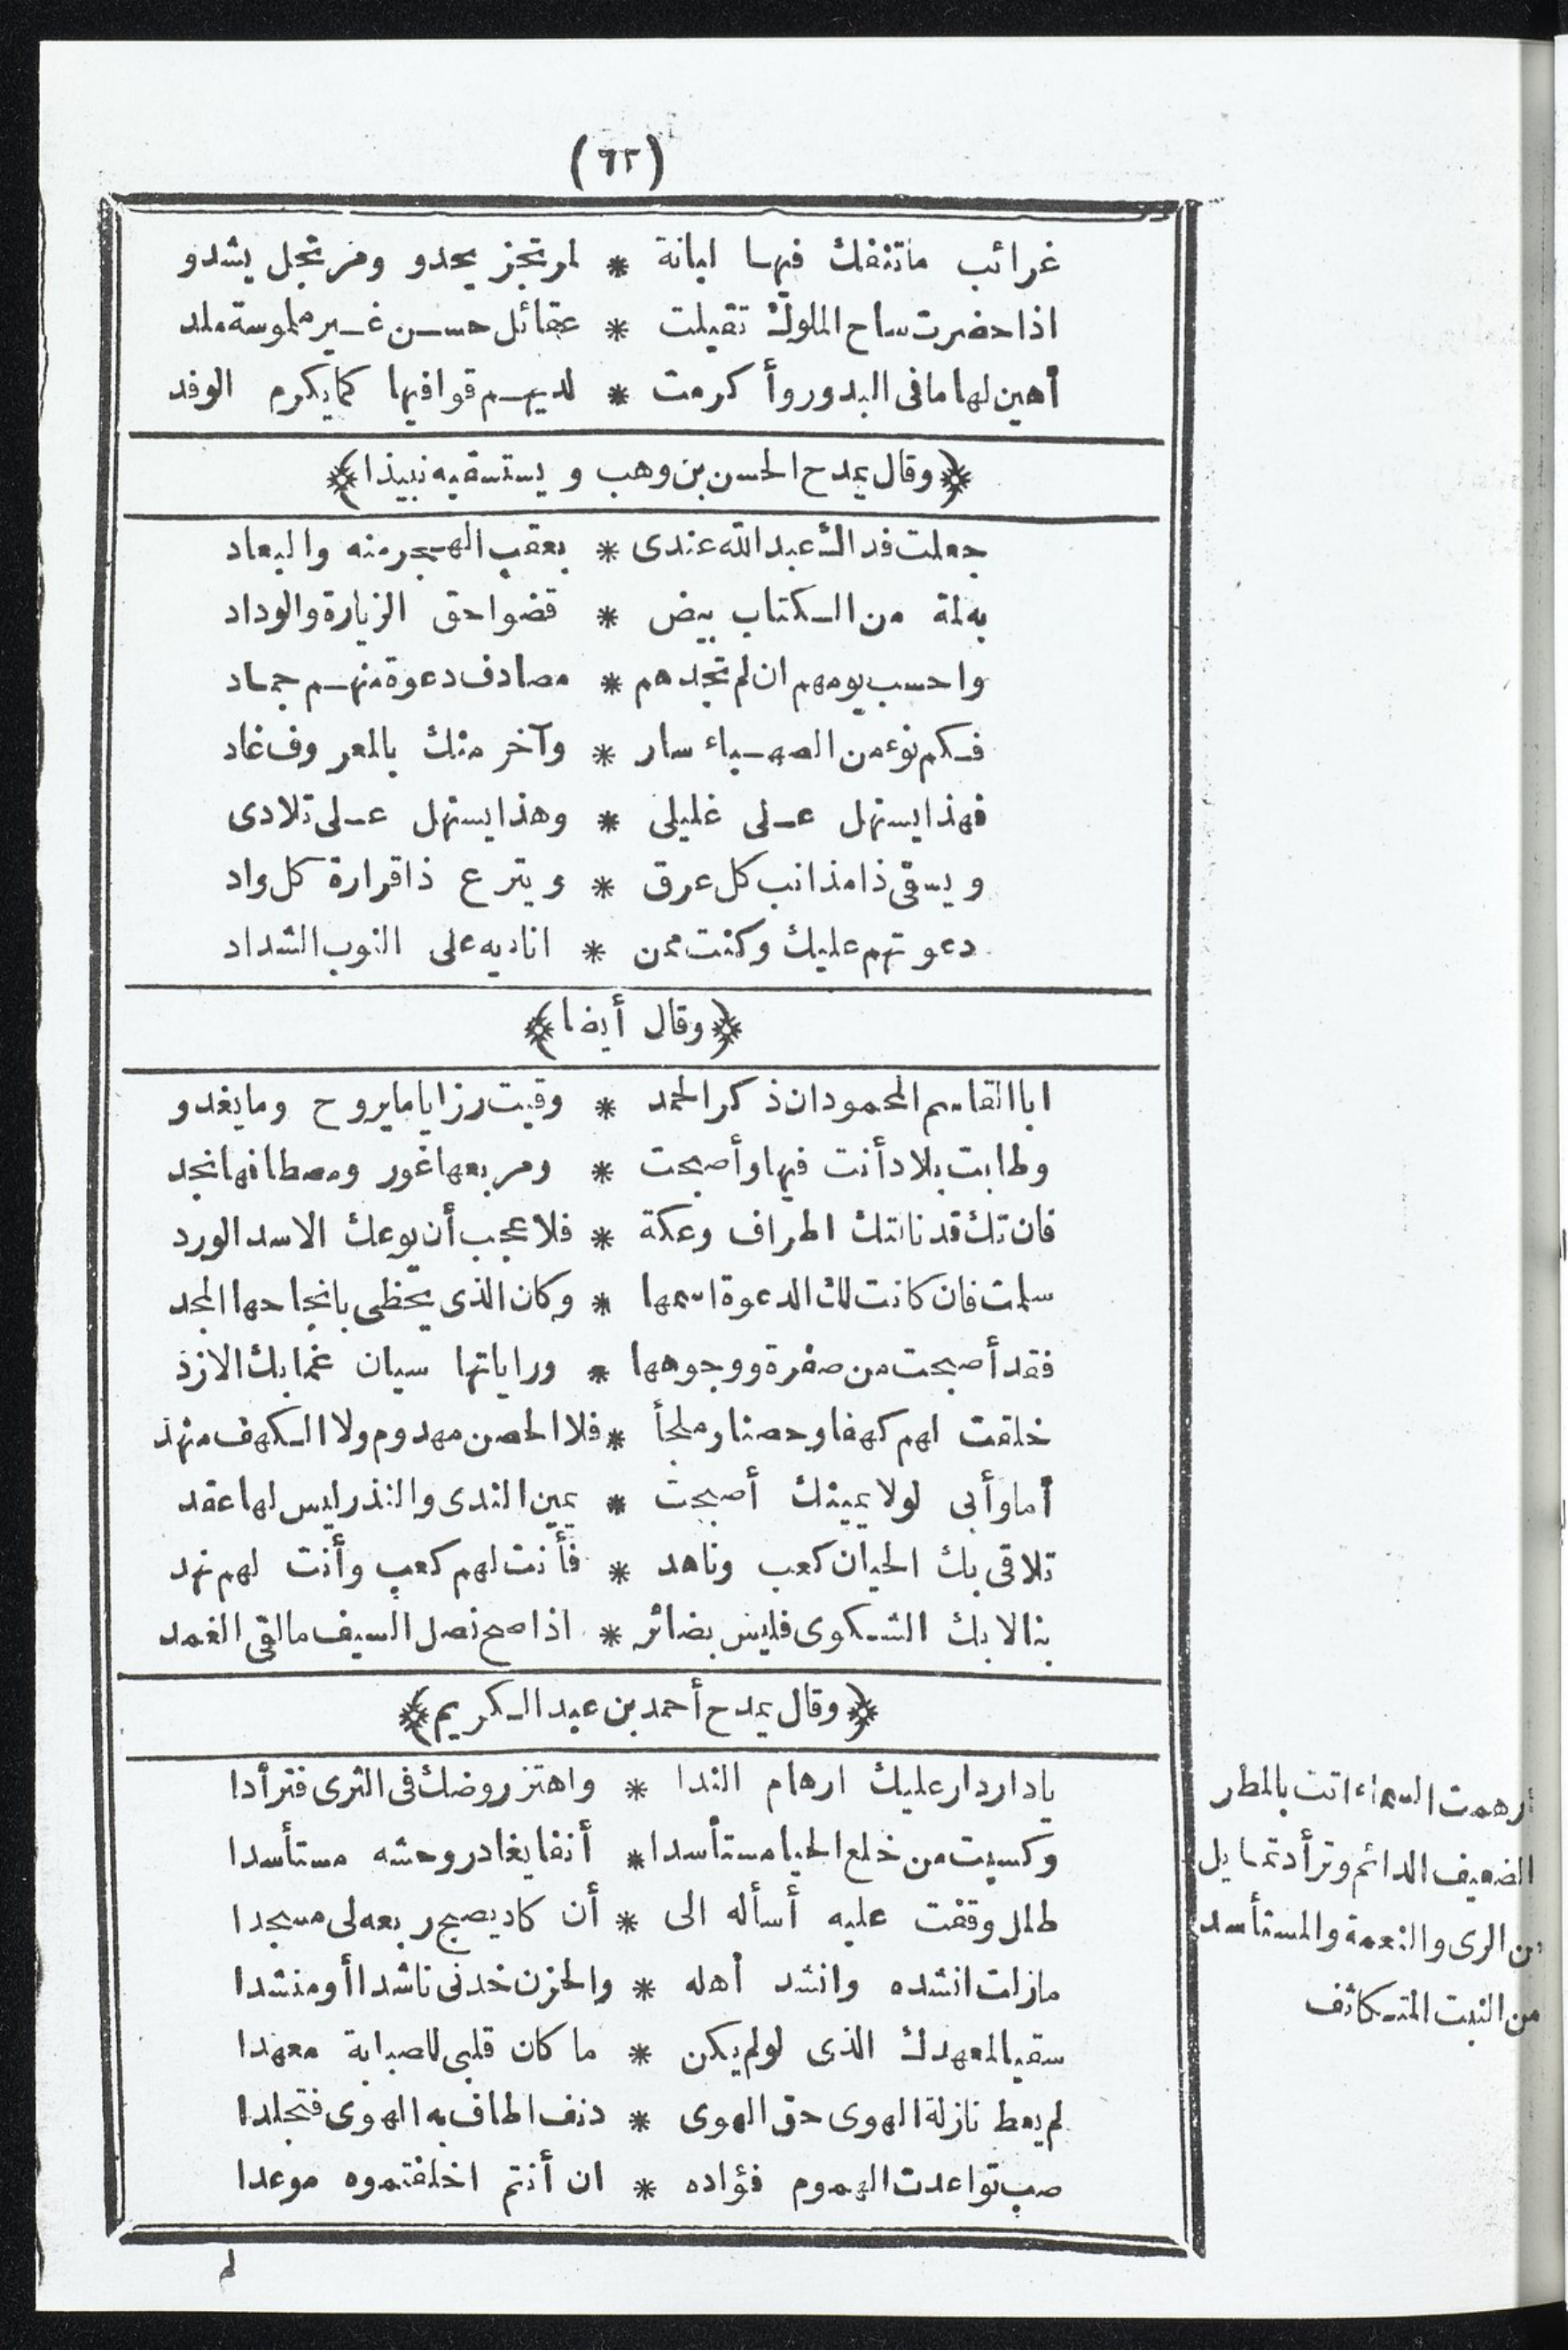 (٦٢)
غرائب ماتنفك فيها لبانة * لمرتجز يحدو ومرتجل يشدو
اذا حضرت ساح الملوك تقبلت * عقائل حسن غير ملموسة ملد
أهين لها ما فى البدور وأكرمت * لديهم قوافيها كما يكرم الوفد
﴿وقال يمدح الحسن بن وهب ويستسقيه نبيذا﴾
جعلت فداك عبد الله عندى * بعقب الهجر منه والبعاد
به لمة من الكتاب بيض * قضوا حق الزيارة والوداد
واحسب يومهم ان لم تجدهم * مصادف دعوة منهم جماد
فكم نوء من الصهباء سار * وآخر منك بالمعروف غاد
فهذا يستهل على غليلى * وهذا يستهل على تلادى
ويسقى ذا مذانب كل عرق * ويترع ذا قرارة كل واد
دعوتهم عليك وكنت ممن * اناديه على النوب الشداد
﴿وقال أيضا﴾
ابا القاسم المحمود ان ذكر الحمد * وقيت رزايا ما يروح وما يغدو
وطابت بلاد أنت فيها وأصبحت * ومربعها غور ومصطافها نجد
فان تك قد نالتك اطراف وعكة * فلا عجب أن يوعك الاسد الورد
سلمت فان كانت لك الدعوة اسمها * وكان الذى يحظى بانجاحها المجد
فقد أصبحت من صفرة ووجوهها * وراياتها سيان غما بك الازد
خلقت لهم كهفا وحصنا وملجأ * فلا الحصن مهدوم ولا الكهف منهد
أما وأبى لولا يمينك أصبحت * يمين الندى والنذر ليس لها عقد
تلاقى بك الحيان كعب وناهد * فأنت لهم كعب وأنت لهم نهد
بنا لا بك الشكوى فليس بضائر * اذا صح نصل السيف ما لقى الغمد
﴿وقال يمدح أحمد بن عبد الكريم﴾
يا دار دار عليك ارهام الندا * واهتز روضك فى الثرى فترأدا
وكسيت من خلع الحيا مستأسدا * أنفا يغادر وحشه مستأسدا
طلل وقفت عليه أسأله الى * أن كاد يصبح ربعه لى مسجدا
مازلت انشده وانشد أهله * والحزن خدنى ناشدا أو منشدا
سقيا لمعهدك الذى لو لم يكن * ما كان قلبى للصبابة معهدا
لم يعط نازلة الهوى حق الهوى * دنف اطاف به الهوى فتجلدا
صب تواعدت الهموم فؤاده * ان أنتم اخلفتموه موعدا
لم
أرهمت السماء اتت بالمطر
الضعيف الدائم وترأد تمايل
من الرى والنعمة والمستأسد
من النبت المتكاثف